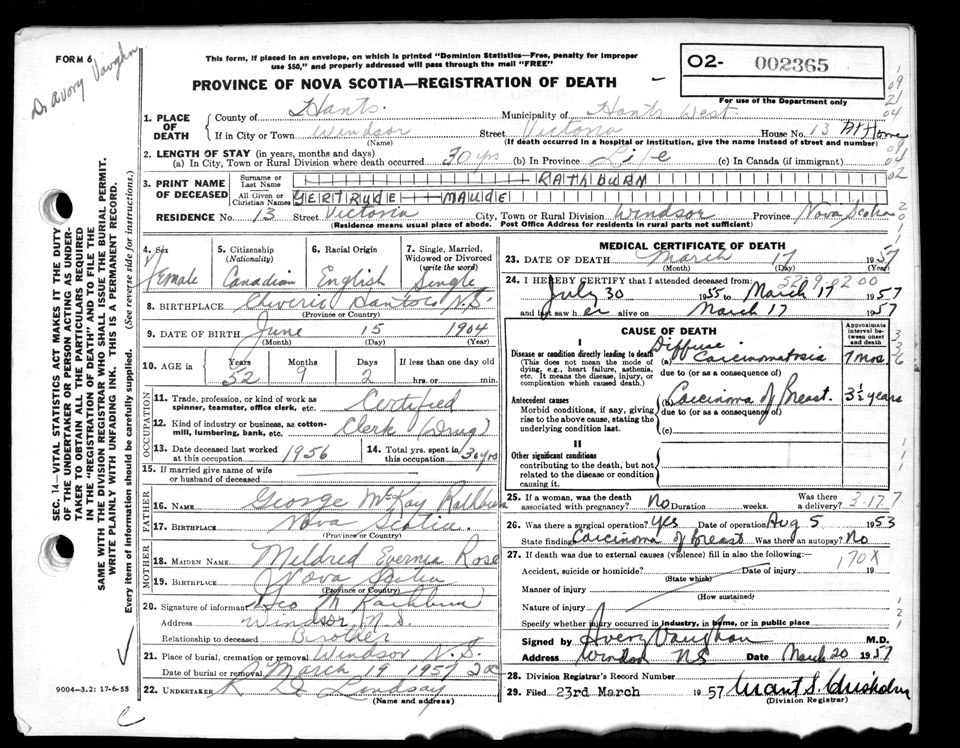 FORM 6
Dr Avery Vaughn
This form, if placed in an envelope, on which is printed "Dominion Statistics—Free, penalty for improper
use $50," and properly addressed will pass through the mail "FREE"
PROVINCE OF NOVA SCOTIA—REGISTRATION OF DEATH
02- 002365
For use of the Department only
1. PLACE OF DEATH
County of Hants. Municipality of Hants West.
If in City or Town Windsor Street Victoria House No. 13 At Home
(Name) (If death occurred in a hospital or institution, give the name instead of street and number)
2. LENGTH OF STAY (in years, months and days)
(a) In City, Town or Rural Division where death occurred 30 yrs (b) In Province Life (c) In Canada (if immigrant)
3. PRINT NAME OF DECEASED
Surname or Last Name RATHBURN
All Given or Christian Names GERTRUDE MAUDE
RESIDENCE No. 13 Street Victoria City, Town or Rural Division Windsor Province Nova Scotia
(Residence means usual place of abode. Post Office Address for residents in rural parts not sufficient)
4. Sex Female
5. Citizenship (Nationality) Canadian
6. Racial Origin English
7. Single, Married, Widowed or Divorced (write the word) Single
8. BIRTHPLACE N.S.
(Province or Country)
9. DATE OF BIRTH June 15 1904
(Month) (Day) (Year)
10. AGE in Years 52 Months 9 Days 2 If less than one day old
hrs. or min.
OCCUPATION
11. Trade, profession, or kind of work as spinner, teamster, office clerk, etc. Certified
12. Kind of industry or business, as cotton-mill, lumbering, bank, etc. Clerk (Drug)
13. Date deceased last worked at this occupation 1956 14. Total yrs. spent in this occupation 30 yrs
15. If married give name of wife or husband of deceased
FATHER
16. NAME George McKay Rathburn
17. BIRTHPLACE Nova Scotia.
(Province or Country)
MOTHER
18. MAIDEN NAME Mildred Evernia Rose
19. BIRTHPLACE Nova Scotia
(Province or Country)
20. Signature of informant Geo M Rathburn
Address Windsor N.S.
Relationship to deceased Brother
21. Place of burial, cremation or removal Windsor N.S.
Date of burial or removal March 19 1957
22. UNDERTAKER Lindsay
(Name and address)
MEDICAL CERTIFICATE OF DEATH
23. DATE OF DEATH March 17 1957
(Month) (Day) (Year)
5229.02.00
24. I HEREBY CERTIFY that I attended deceased from:
July 30 1955 to March 17 1957
and last saw her alive on March 17 1957
CAUSE OF DEATH
Approximate interval between onset and death
I
Disease or condition directly leading to death (a) Diffuse Carcinomatosis 7 mos.
(This does not mean the mode of dying, e.g., heart failure, asthenia, etc. It means the disease, injury, or complication which caused death.)
due to (or as a consequence of)
Antecedent causes
Morbid conditions, if any, giving rise to the above cause, stating the underlying condition last.
(b) Carcinoma of Breast. 3½ years
due to (or as a consequence of)
(c)
II
Other significant conditions
contributing to the death, but not related to the disease or condition causing it.
25. If a woman, was the death associated with pregnancy? No Duration weeks. Was there a delivery? 3.17 7
26. Was there a surgical operation? Yes Date of operation Aug 5 1953
State finding Carcinoma of Breast Was there an autopsy? No
27. If death was due to external causes (violence) fill in also the following:—
170X
Accident, suicide or homicide? Date of injury 19
(State which)
Manner of injury
(How sustained)
Nature of injury
Specify whether injury occurred in industry, in home, or in public place
Signed by Avery Vaughan M.D.
Address Windsor NS Date March 20 1957
28. Division Registrar's Record Number
29. Filed 23rd March 1957 Grant S. Chisholm
(Division Registrar)
SEC. 14—VITAL STATISTICS ACT MAKES IT THE DUTY
OF THE UNDERTAKER OR PERSON ACTING AS UNDER-
TAKER TO OBTAIN ALL THE PARTICULARS REQUIRED
IN THE "REGISTRATION OF DEATH" AND TO FILE THE
SAME WITH THE DIVISION REGISTRAR WHO SHALL ISSUE THE BURIAL PERMIT.
WRITE PLAINLY WITH UNFADING INK. THIS IS A PERMANENT RECORD.
Every item of information should be carefully supplied. (See reverse side for instructions.)
9004-3.2: 17-6-55